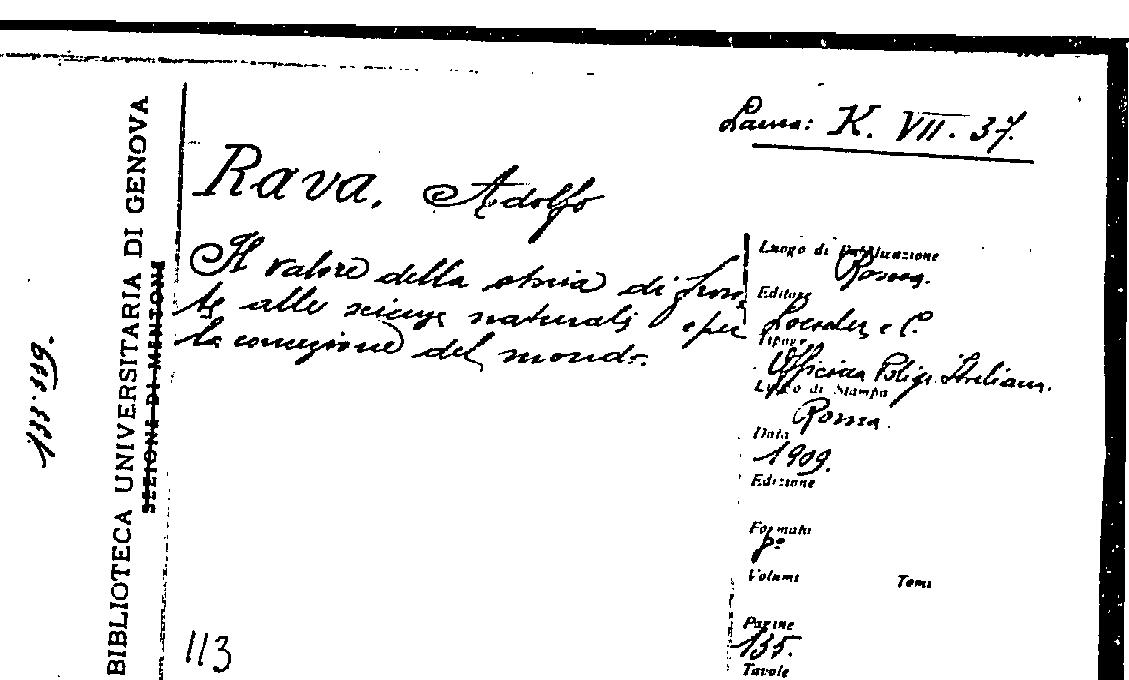 Laura: K. VII. 37.
Rava, Adolfo
Il valore della storia di fron
te alle scienze naturali e per
la concezione del mondo.
Luogo di Pubblicazione
Roma.
Editore
Loescher e C.
Tipogr.
Officina Poligr. Italiana.
Luogo di Stampa
Roma.
Data
1909.
Edizione
Formato
8º
Volumi Tomi
Pagine
135.
Tavole
113
BIBLIOTECA UNIVERSITARIA DI GENOVA
SEZIONE DI MENTONE
133.339.